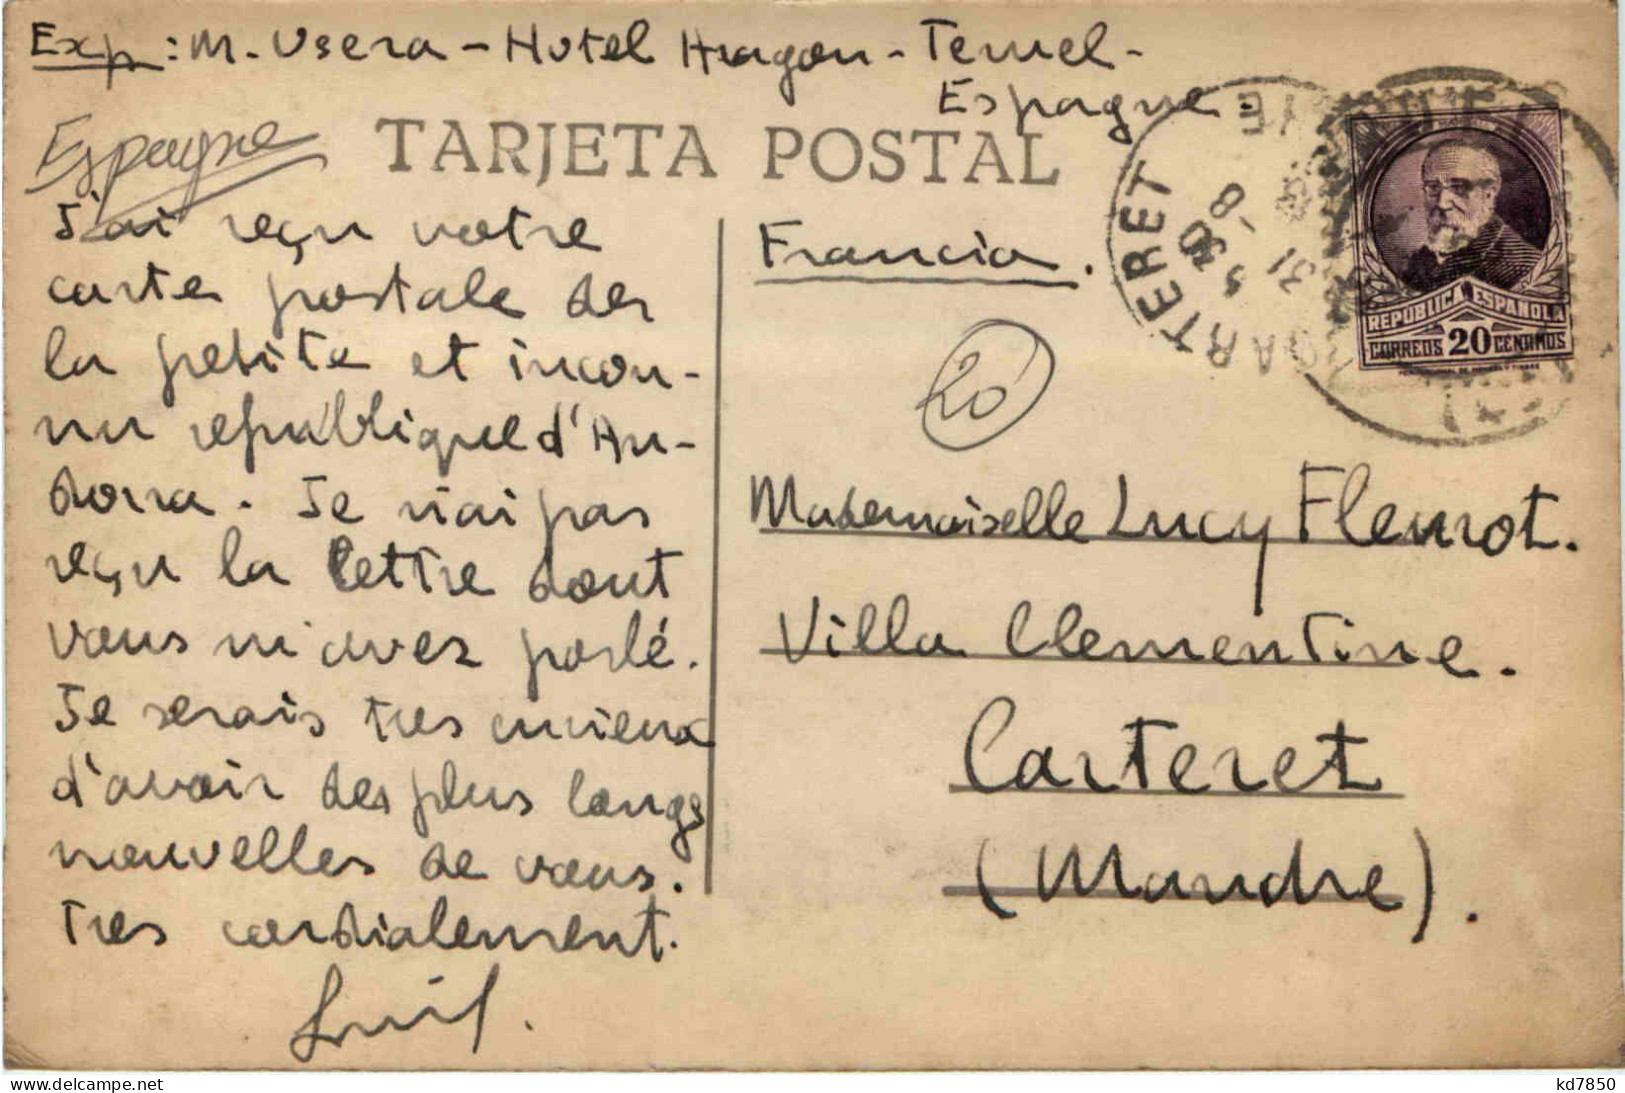 Exp: M. Usera - Hotel Aragon - Teruel -
Espagne -
Espagne
TARJETA POSTAL
J'ai reçu votre
carte postale des
la petite et incon-
nu republique d'An-
dorra. Je n'ai pas
reçu la lettre dont
vous m'avez parlé.
Je serais tres mieux
d'avoir des plus longs
nouvelles de vous.
Tres cordialement.
Luis.
Francia.
20
Mademoiselle Lucy Fleurot.
Villa Clementine.
Carteret
(Mandre).
CARTERET
5 30
31 -8
REPUBLICA ESPAÑOLA
CORREOS 20 CENTIMOS
delcampe.net
kd7850